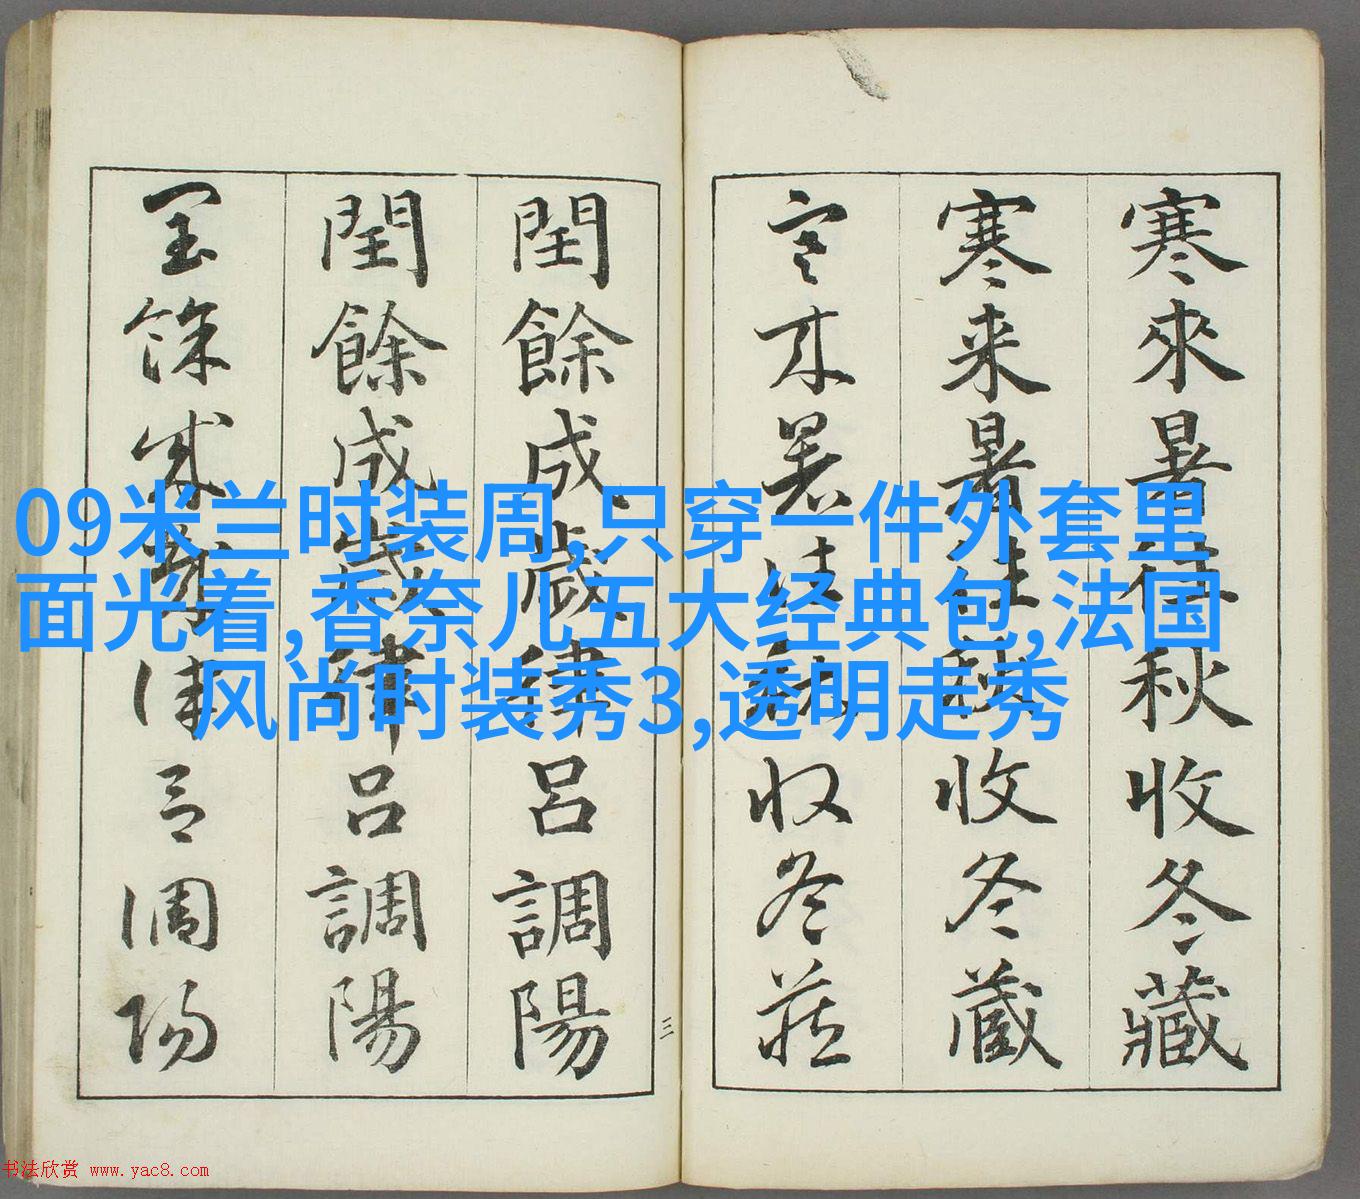 寒來暑往秋收冬藏
寒来暑往秋收冬蔵
寒来暑往秋收冬藏
閏餘成歲律呂調陽
閏餘成歲律呂調陽
閏餘成歲律呂調陽
三
09米兰时装周,只穿一件外套里
面光着,香奈儿五大经典包,法国
风尚时装秀3,透明走秀
书法欣赏 www.yac8.com